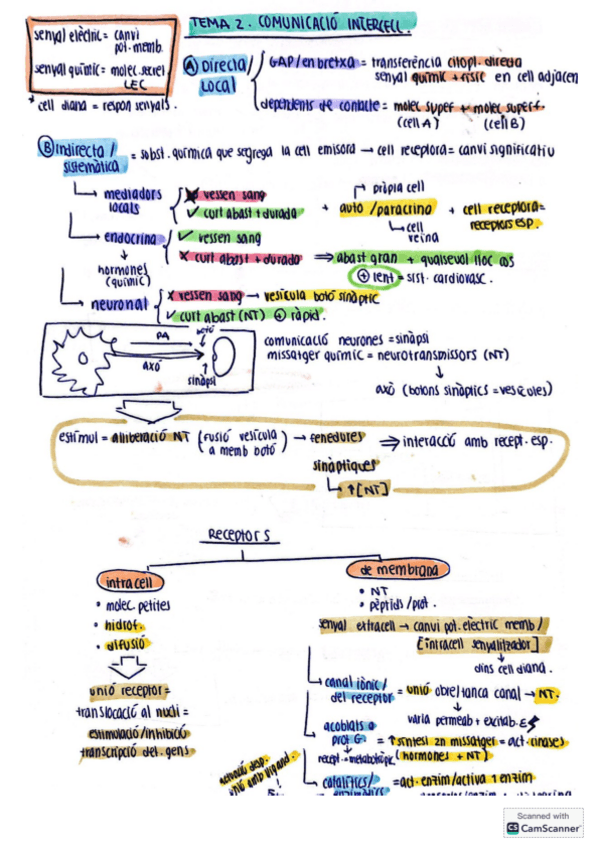 TEMA 2. COMUNICACIÓ INTERCELL.
senyal elèctric = canvi
pot. memb.
senyal químic = molec. secret
LEC
* cell diana = respon senyals.
A Directa/
Local
GAP/en bretxa = transferència citopl. directa
senyal químic + físic en cell adjacen
dependents de contacte = molec superf + molec superf.
(cell A) (cell B)
B Indirecta /
sistemàtica = subst. química que segrega la cell emisora → cell receptora = canvi significatiu
→ mediadors
locals
X vessen sang
✓ curt abast + durada
+ auto /paracrino
→ pròpia cell
↳ cell
veïna
+ cell receptora =
receptors esp.
→ endocrina
✓ vessen sang
X curt abast + durada ⇒ abast gran + qualsevol lloc cos
+ lent = sist. cardiovasc.
↓
hormones
(químic)
→ neuronal
X vessen sang → vesícula botó sinàptic
✓ curt abast (NT) + ràpid.
PA
botó
AXÓ
sinàpsi
comunicació neurones = sinàpsi
missatger químic = neurotransmissors (NT)
↓
axó (botons sinàptics = vesícules)
estímul = alliberació NT (fusió vesícula
a memb botó) → fenedures
sinàptiques ⇒ interacció amb recept. esp.
↳ ↑[NT]
RECEPTORS
intracell
• molec. petites
• hidrof.
• difusió
unió receptor =
translocació al nucli =
estimulació/inhibició
transcripció det. gens
de membrana
• NT
• pèptids/prot.
senyal extracell → canvi pot. elèctric memb /
[intracell senyalitzador]
↓
dins cell diana.
→ canal iònic /
del receptor = unió obre/tanca canal → NT.
↓
varia permeab + excitab. E
→ acoblats a
prot G. = ↑ síntesi 2n missatger = act. cinases
recept. metabotròpic (hormones + NT)
→ catalítics/
enzimàtics = act. enzim/activa 1 enzim
amb lligand.
!
Scanned with
CS CamScanner